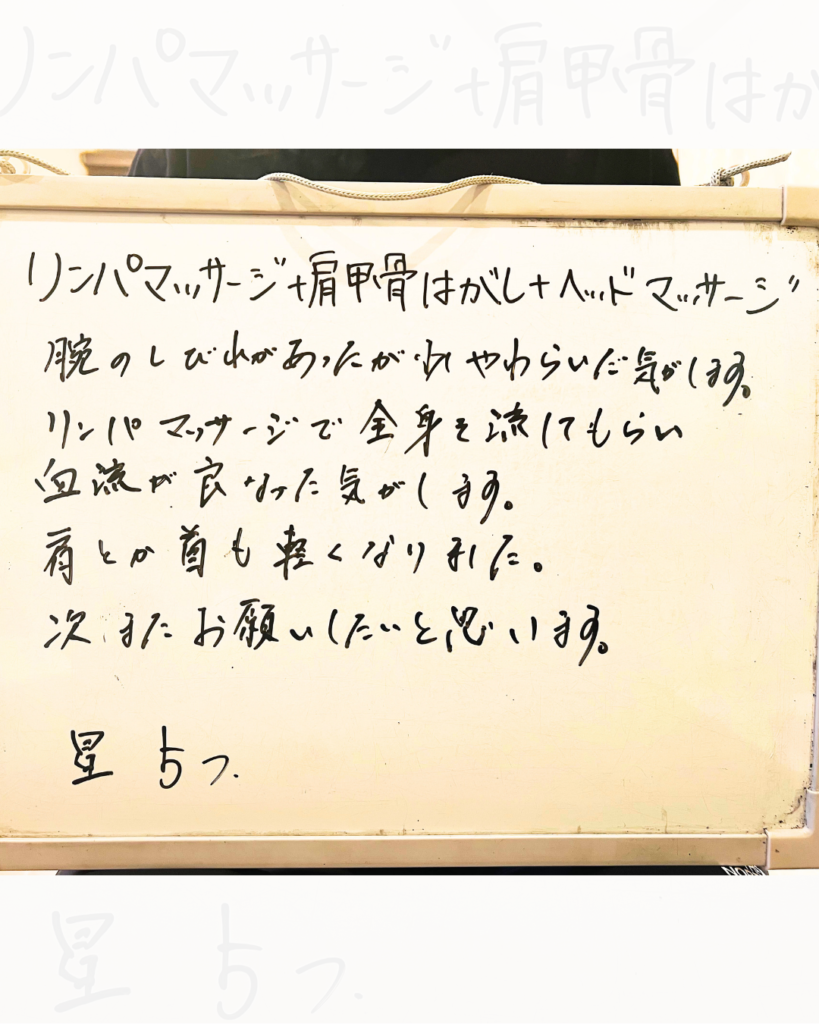 リンパマッサージ+肩甲骨はがし+ヘッドマッサージ
腕のしびれがあったがやわらいだ気がします。
リンパマッサージで全身を流してもらい
血流が良なった気がします。
肩とか首も軽くなりました。
次またお願いしたいと思います。
星 5つ.